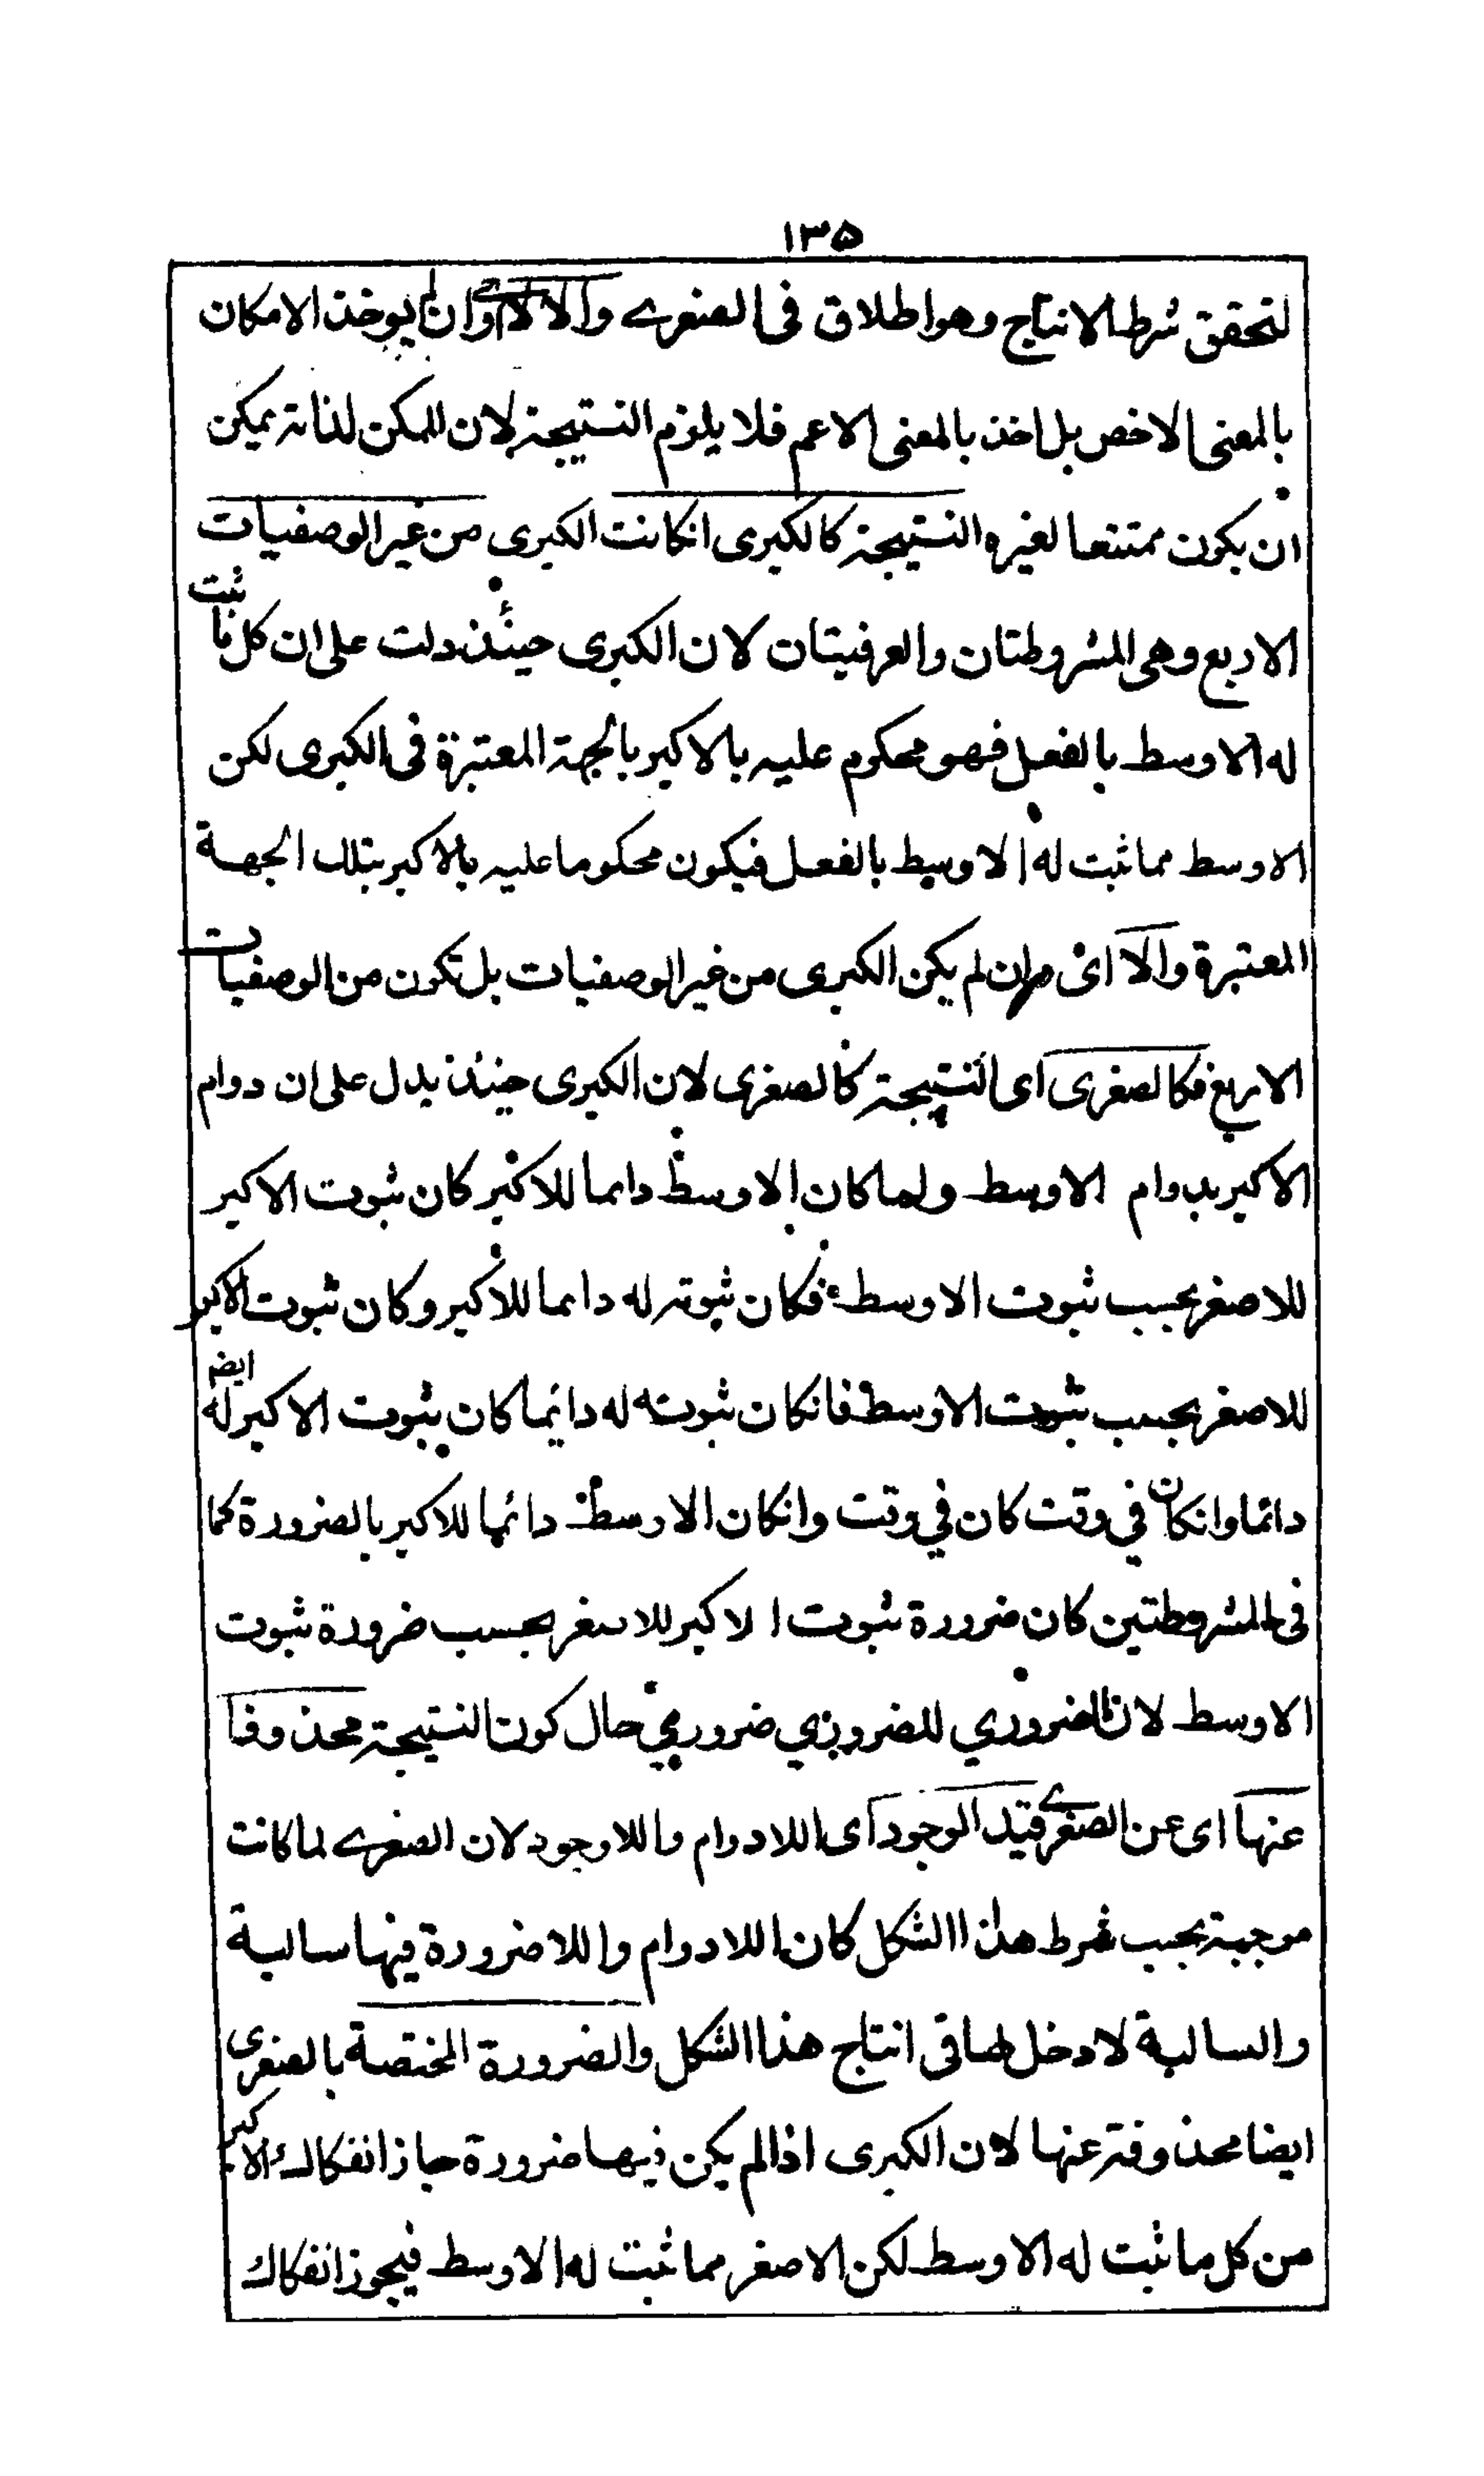 ١٣٥
لتحقق شرط الانتاج وهو اطلاق فى الصغرے والالا اى وان لم يوخذ الامكان
بالمعنى الاخص بل اخذ بالمعنى الاعم فلا يلزم النتيجة لان الممكن لذاته يمكن
ان يكون ممتنعا لغيره النتيجة كالكبرى انكانت الكبرى من غير الوصفيات
الاربع وهى المشروطتان والعرفيتان لان الكبرى حينئذ دلت على ان كل ما ثبت
له الاوسط بالفعل فهو محكوم عليه بالاكبر بالجهة المعتبرة فى الكبرى لكن
الاوسط مما ثبت له الاوسط بالفعل فيكون محكوما عليه بالاكبر بتلك الجهة
المعتبرة والا اى وان لم يكن الكبرى من غير الوصفيات بل تكون من الوصفيات
الاربع فكالصغرى اى النتيجة كالصغرى لان الكبرى حينئذ يدل على ان دوام
الاكبر بدوام الاوسط ولما كان الاوسط دائما للاكبر كان ثبوت الاكبر
للاصغر بحسب ثبوت الاوسط فكان ثبوته له دائما للاكبر وكان ثبوت الاكبر
للاصغر بحسب ثبوت الاوسط فانكان ثبوته له دائما كان ثبوت الاكبر له ايضا
دائما وانكان فى وقت كان في وقت وانكان الاوسط دائما للاكبر بالضرورة كما
فى المشروطتين كان ضرورة ثبوت الاكبر للاصغر بحسب ضرورة ثبوت
الاوسط لان الضروري للضروري ضروري حال كون النتيجة محذوفا
عنها اى عن الصغرے قيد الوجود اى اللادوام واللاوجود لان الصغرے لما كانت
موجبة بحسب شرط هذا الشكل كان اللادوام واللاضرورة فيها سالبة
والسالبة لا دخل لها فى انتاج هذا الشكل والضرورة المختصة بالصغرى
ايضا محذوفة عنها لان الكبرى اذا لم يكن فيها ضرورة جاز انفكاك الاكبر
من كل ما ثبت له الاوسط لكن الاصغر مما ثبت له الاوسط فيجوز انفكاك